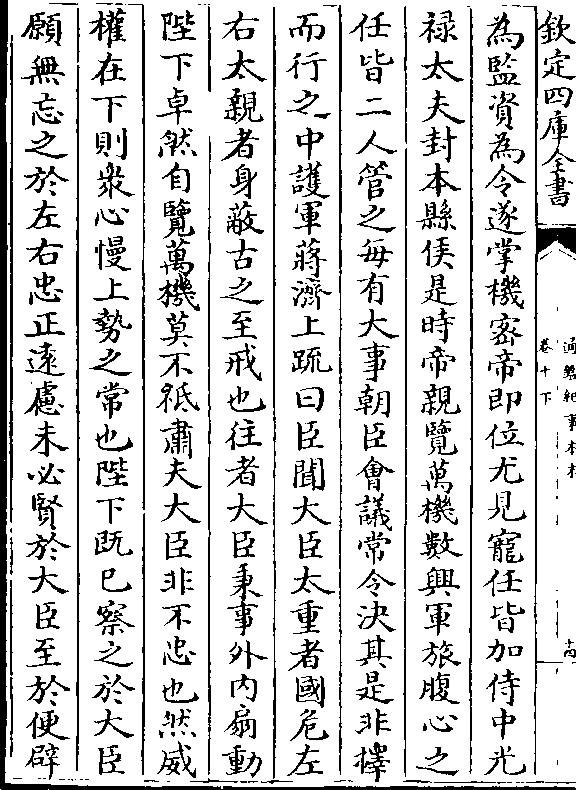 欽定四庫全書
通鑑紀事本末
卷十下
為監資為令遂掌機密帝即位尤見寵任皆加侍中光
祿大夫封本縣侯是時帝親覽萬機數興軍旅腹心之
任皆二人管之每有大事朝臣會議常令決其是非擇
而行之中護軍蔣濟上疏曰臣聞大臣太重者國危左
右太親者身蔽古之至戒也往者大臣秉事外内扇動
陛下卓然自覽萬機莫不祗肅夫大臣非不忠也然威
權在下則衆心慢上勢之常也陛下既已察之於大臣
願無忘之於左右忠正遠慮未必賢於大臣至於便辟